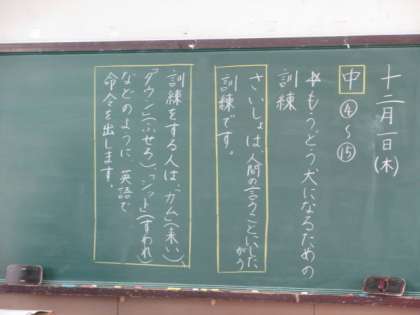 十二月一日(木)
中 ④〜⑮
もうどう犬になるための
訓練
さいしょは、人間の言うことにしたがう
訓練です。
訓練をする人は、「カム」(来い)、
「ダウン」(ふせろ)、「シット」(すわれ)
などのように、英語で
命令を出します。